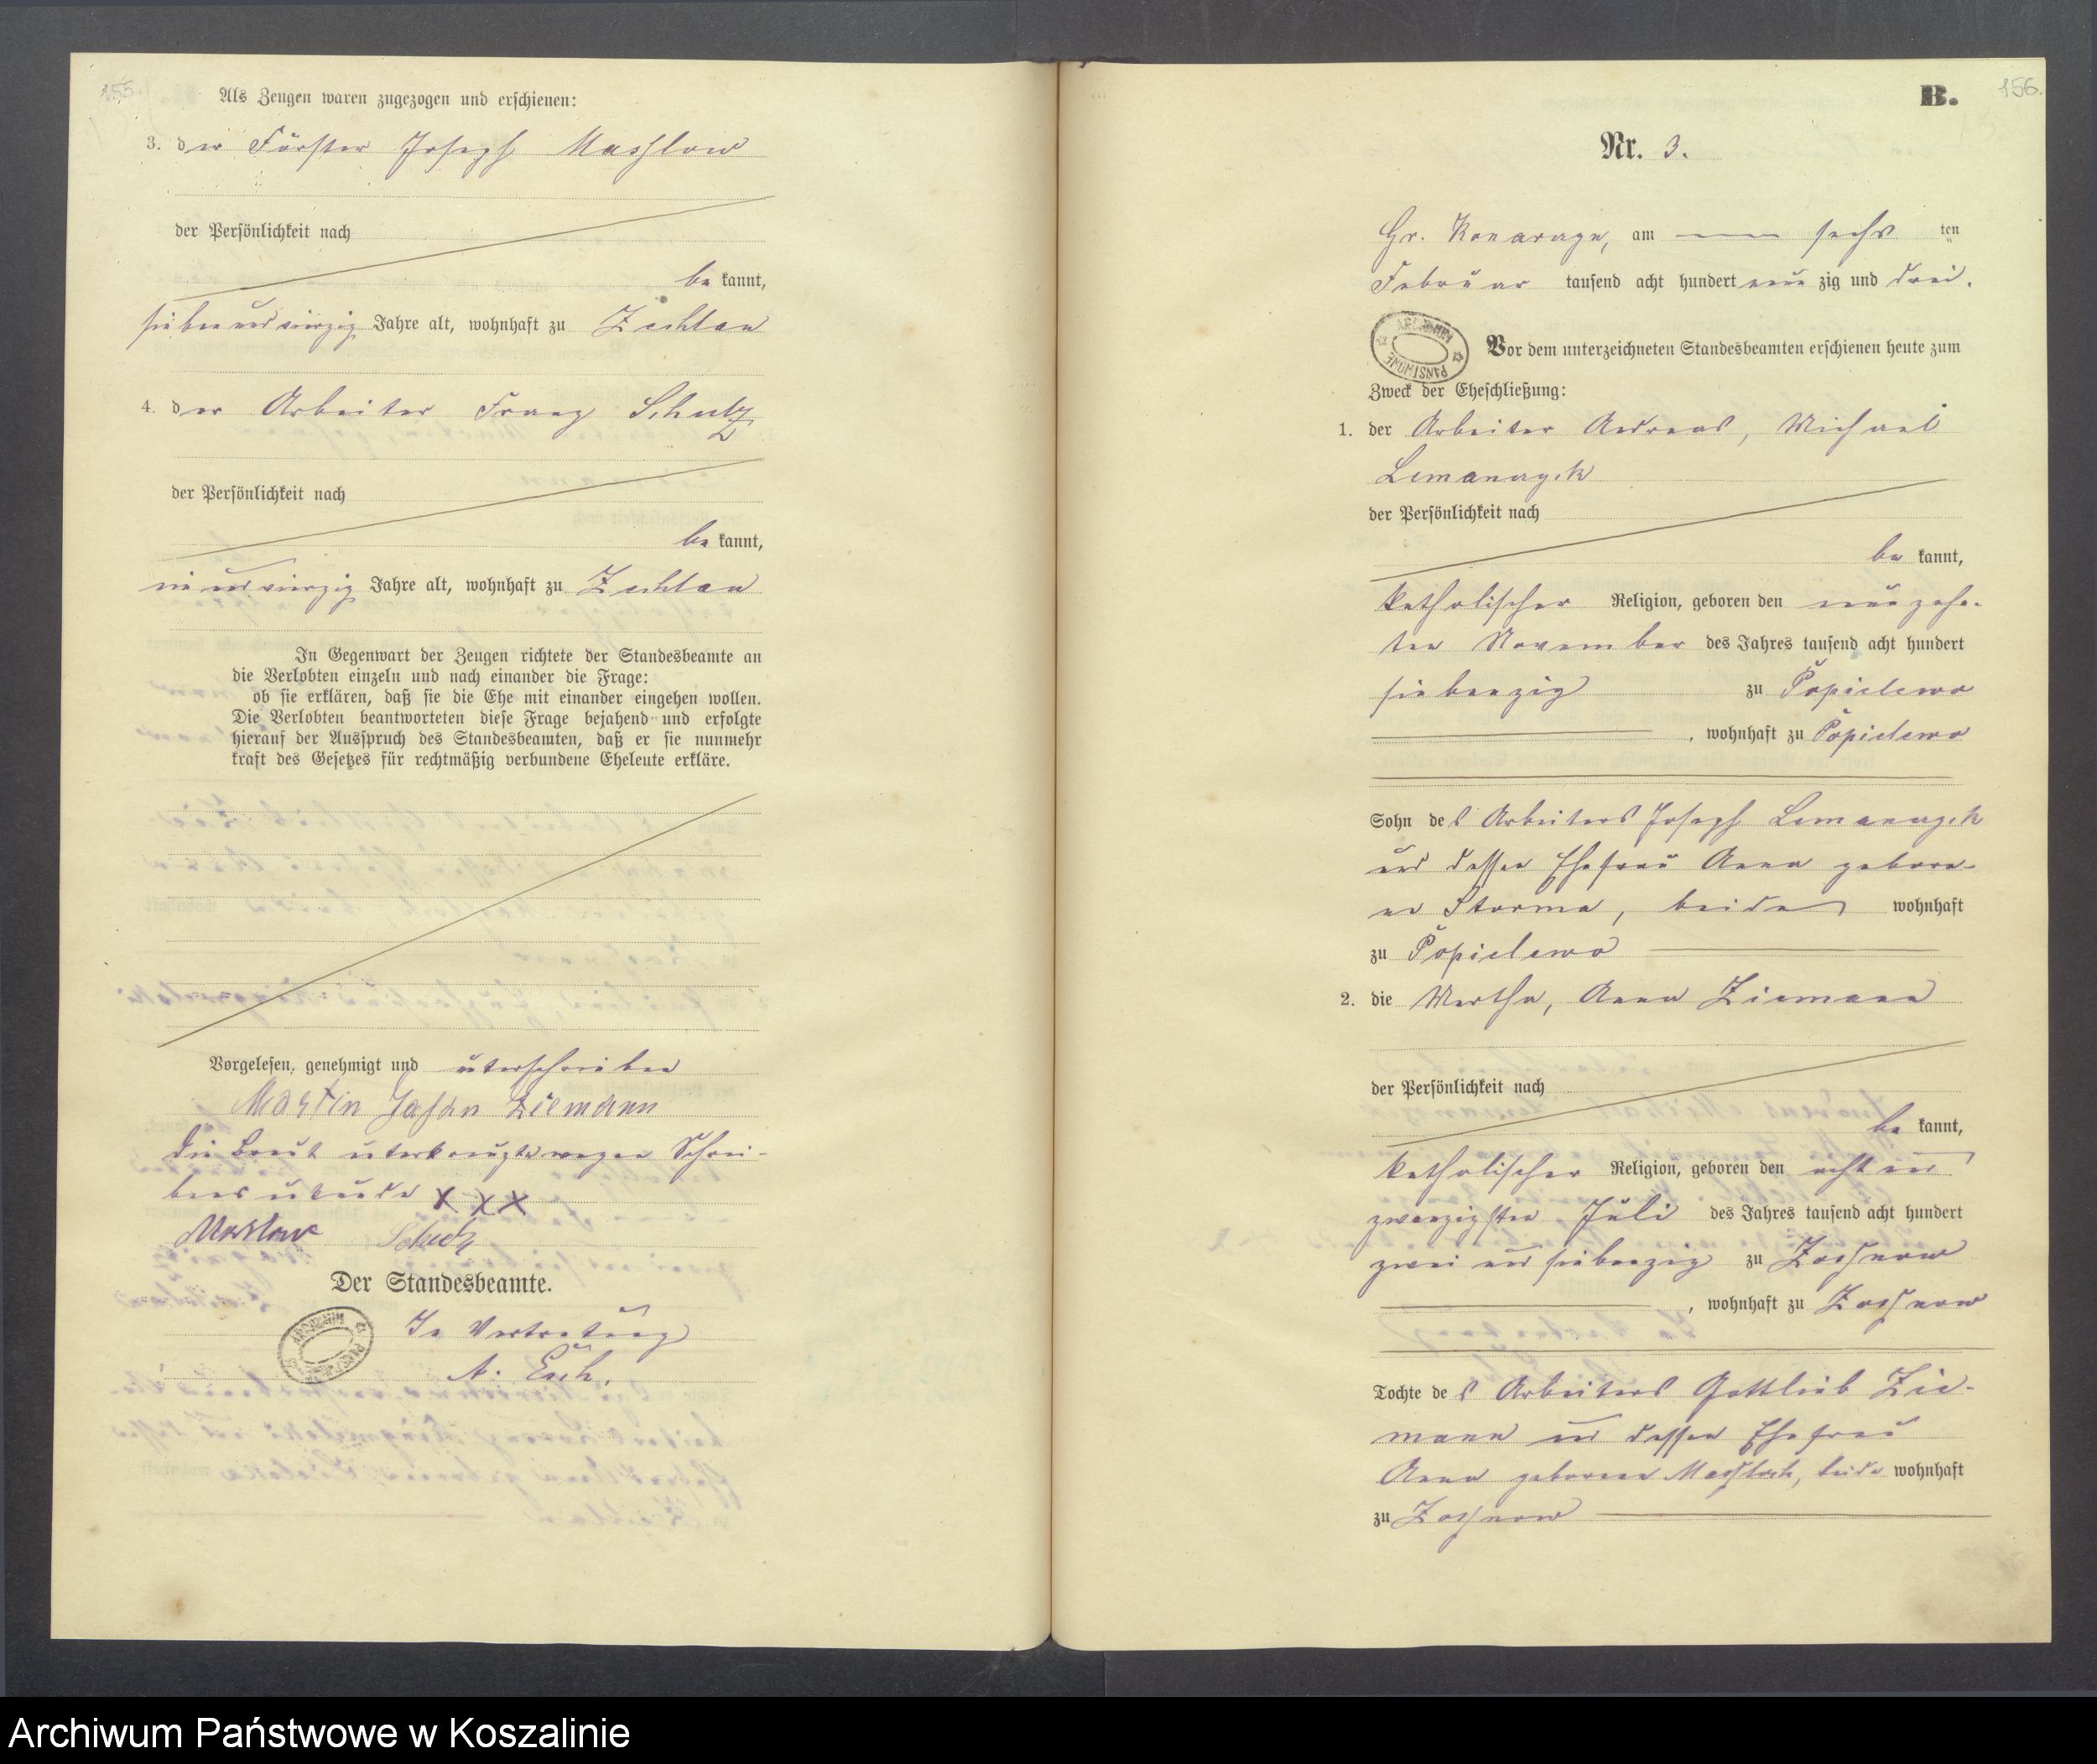 155.
Als Zeugen waren zugezogen und erschienen:
3. der Förster Joseph Masslow
der Persönlichkeit nach
be kannt,
sieben und vierzig Jahre alt, wohnhaft zu Zechlau
4. der Arbeiter Franz Schulz
der Persönlichkeit nach
be kannt,
ein und vierzig Jahre alt, wohnhaft zu Zechlau
In Gegenwart der Zeugen richtete der Standesbeamte an
die Verlobten einzeln und nach einander die Frage:
ob sie erklären, daß sie die Ehe mit einander eingehen wollen.
Die Verlobten beantworteten diese Frage bejahend und erfolgte
hierauf der Ausspruch des Standesbeamten, daß er sie nunmehr
kraft des Gesetzes für rechtmäßig verbundene Eheleute erkläre.
Vorgelesen, genehmigt und unterschrieben
Martin Johan Ziemann
die Braut unterkreuzte wegen Schrei-
bens unkunde x x x
Maslow
Der Standesbeamte.
In Vertretung
ARCHIWUM PAŃSTWOWE
B.
156.
Nr. 3.
Gr. Konarczyn, am sechs ten
Februar tausend acht hundert neun zig und drei.
ARCHIWUM PAŃSTWOWE
Vor dem unterzeichneten Standesbeamten erschienen heute zum
Zweck der Eheschließung:
1. der Arbeiter Andreas, Michael
Lemanczyk
der Persönlichkeit nach
be kannt,
katholischer Religion, geboren den neunzehn-
ten November des Jahres tausend acht hundert
siebenzig zu Popielewo
, wohnhaft zu Popielewo
Sohn des Arbeiters Joseph Lemanczyk
und dessen Ehefrau Anna gebore-
ne Storma, beide wohnhaft
zu Popielewo
2. die Martha, Anna Ziemann
der Persönlichkeit nach
be kannt,
katholischer Religion, geboren den acht und
zwanzigsten Juli des Jahres tausend acht hundert
zwei und siebenzig zu Zossnow
, wohnhaft zu Zossnow
Tochte des Arbeiters Gottlieb Zie-
mann und dessen Ehefrau
Anna geborenen beide wohnhaft
zu Zossnow
Archiwum Państwowe w Koszalinie